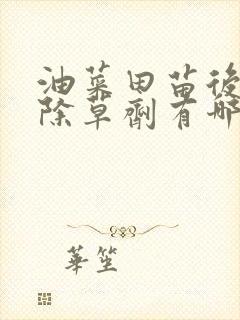 油菜田苗後
除草劑有哪
華笙